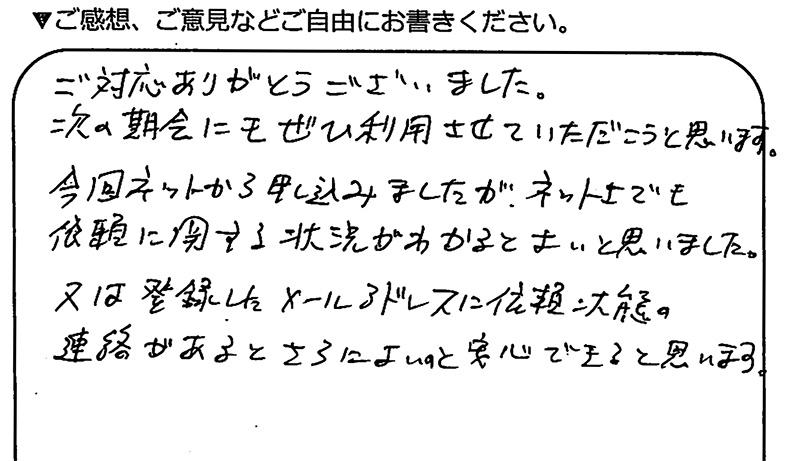 ▼ご感想、ご意見などご自由にお書きください。
ご対応ありがとうございました。
次の期会にもぜひ利用させていただこうと思います。
今回ネットから申し込みましたが、ネット上でも
依頼に関する状況がわかるとよいと思いました。
又は登録したメールアドレスに依頼状態の
連絡があるとさらによいのと安心できると思います。